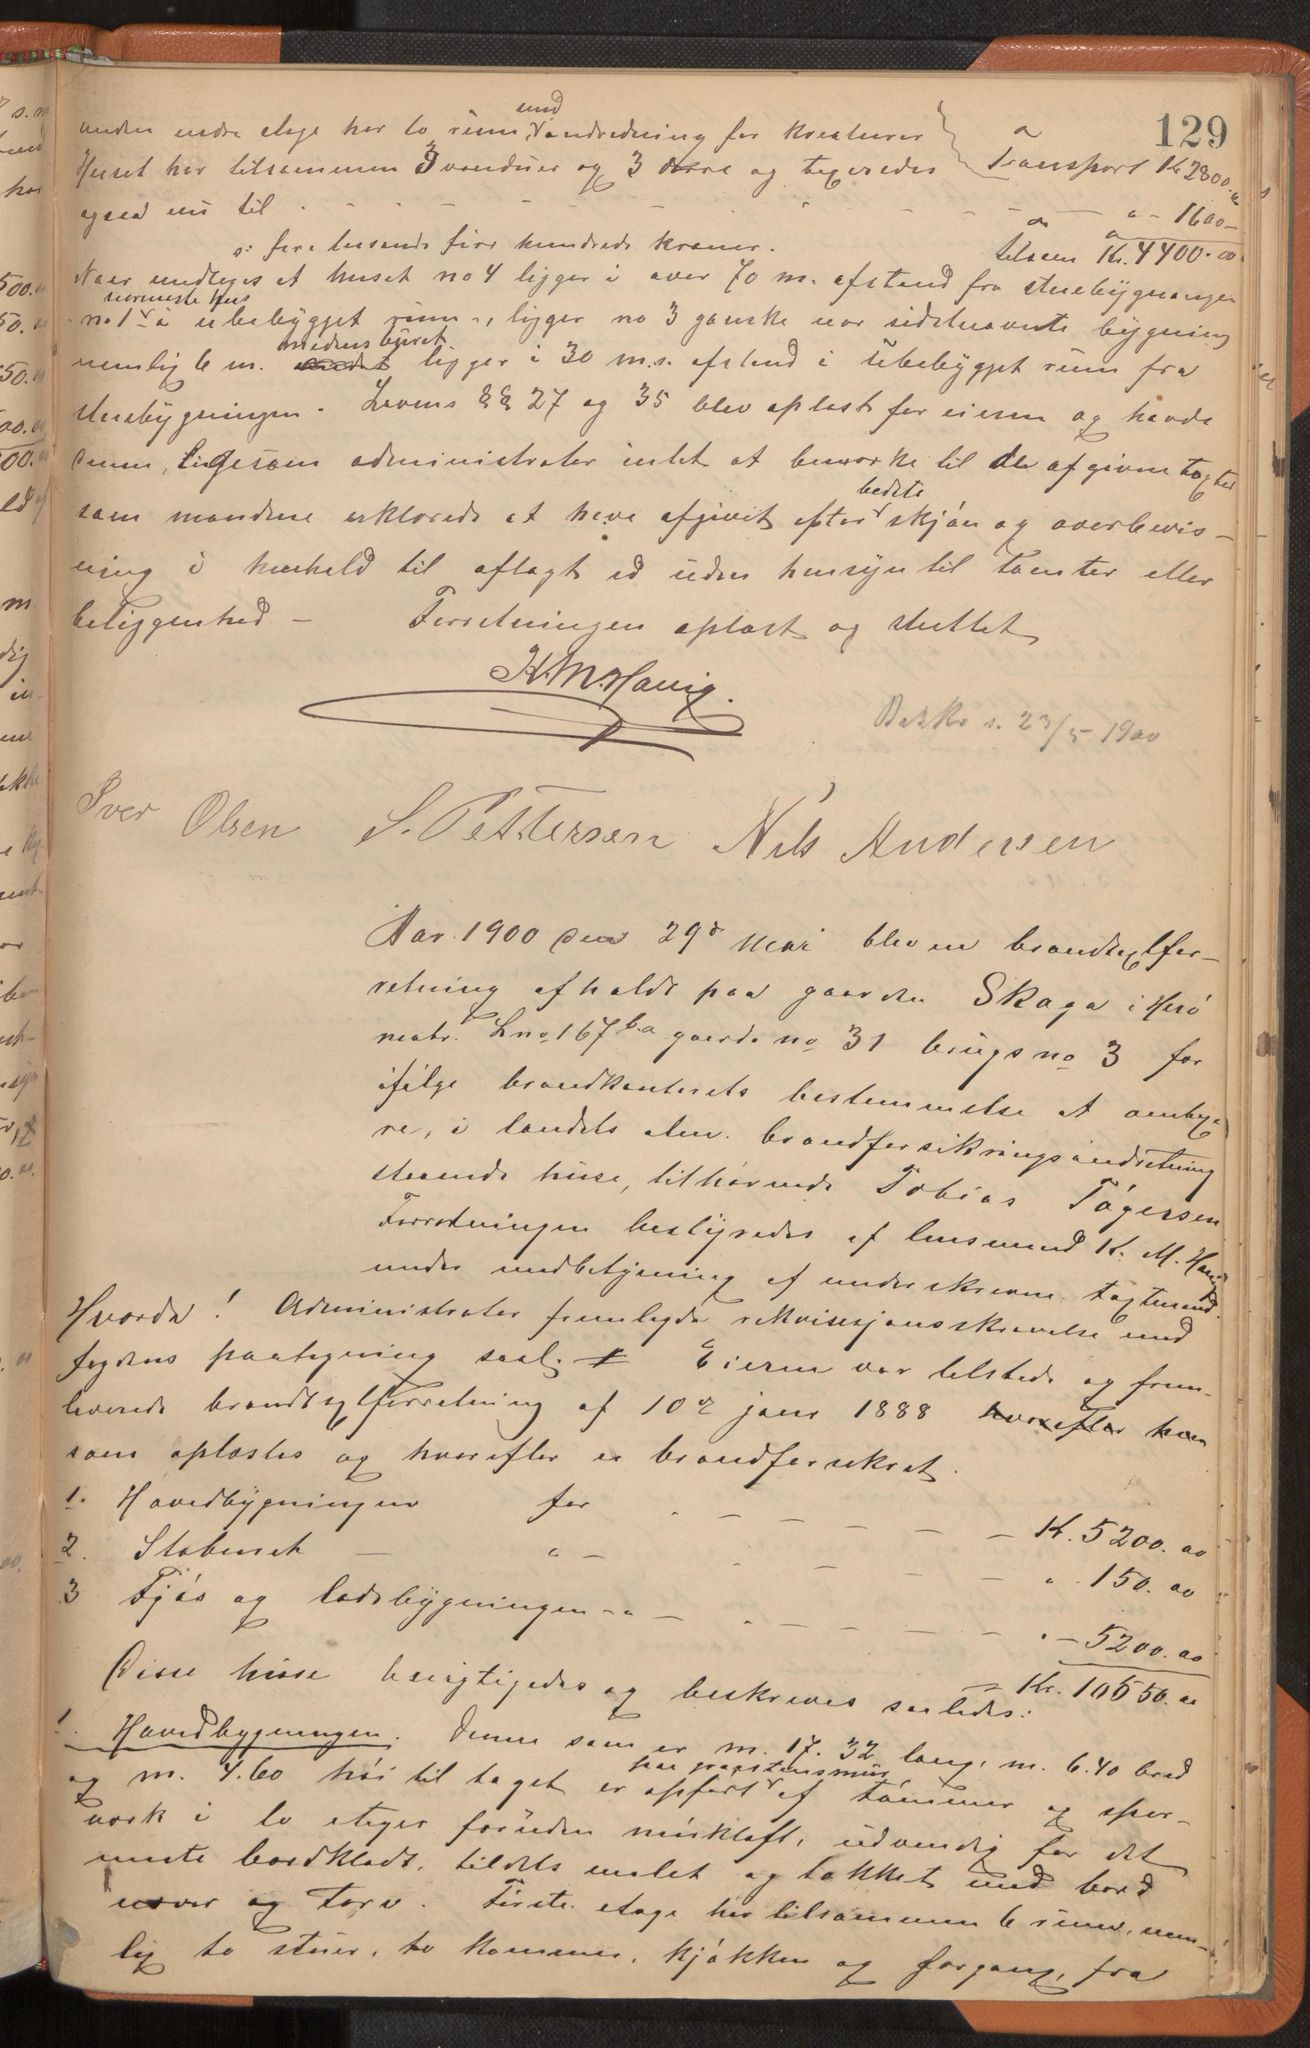 129
anden endre etage har to rum med indredning for kreaturer
Huset har tilsammen 3 vinduer og 3 døre og taxeredes Transport Kr 2800.00
ogsaa nu til - - - - - - - " - 1600 -
s: fire tusende fire hundrede kroner. tilsam Kr. 4400.00
Naar undtages at huset no 4 ligger i over 70 m. afstand fra stuebygningen
no 1 nærmeste hus i ubebygget rum, ligger no 3 ganske nær sidstnævnte bygning
nemlig 6 m. medens buret ligger i 30 m.s. afstand i ubebygget rum fra
stuebygningen. Lovens §§ 27 og 35 blev oplæst for eieren og havde
denne, ligesom administrator intet at bemærke til de afgivne taxter
som mændene erklærede at have afgivet efter bedste skjøn og overbevis-
ning i henhold til aflagt ed uden hensyn til tomter eller
beliggenhed - Forretningen oplæst og sluttet
K. M. Havig.
Beskr. s. 23/5 1900
Iver Olsen S. Pettersen Nils Andersen
Aar 1900 den 29de mai blev en brandtaxtfor-
retning afholdt paa gaarden Skaga i Herø
matr. Lno 167 b.a gaards no 31 brugs no 3 for
ifølge brandkontorets bestemmelse at omtaxe-
re, i landets alm. brandforsikringsindretning
staaende huse, tilhørende Tobias Tøgersen
Forretningen bestyredes af lensmand K. M. Havig
under medbetjening af underskrevne taxtmænd.
Hvorda! Administrator fremlagde rekvisisjonsskrivelse med
fogdens paategning saal. Eieren var tilstede og frem-
leverede brandtaxtforretning af 10de jan 1888 hvorefter hvor
som oplæstes og hvorefter er brandforsikret.
1. Hovedbygningen for - - - - - K. 5200.00
2. Stabburet - " - - - - - " 150.00
3 Fjøs og ladebygningen - " - - - - - " - 5200.00
Disse huse besigtigedes og beskreves saaledes: Kr. 10550.00
1. Hovedbygningen. Denne som er m. 17.32 lang, m. 6.40 bred
og m. 4.60 høi til taget er opført paa graastensmur af tømmer og sper-
værk i to etager foruden mørkloft, udvendig for det
meste bordklædt, tildels malet og tækket med bord
næver og torv. Første etage har tilsammen 6 rum, nem-
lig to stuer, to kammer, kjøkken og forgang, fra